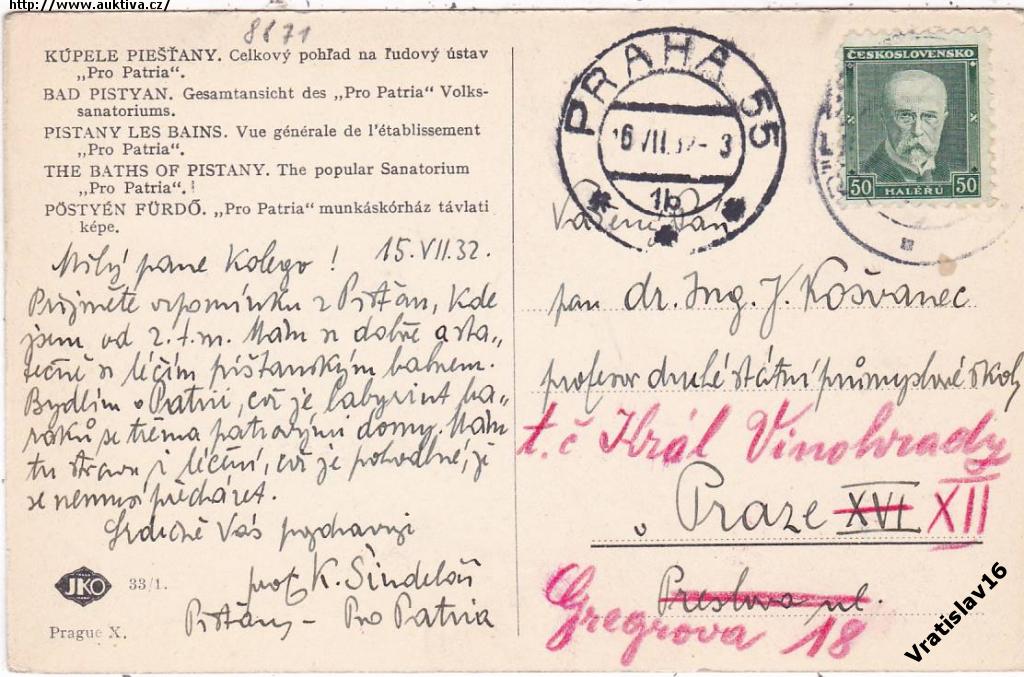 http://www.auktiva.cz/
8871
KÚPELE PIEŠŤANY. Celkový pohľad na ľudový ústav
„Pro Patria“.
BAD PISTYAN. Gesamtansicht des „Pro Patria“ Volks-
sanatoriums.
PISTANY LES BAINS. Vue générale de l'établissement
„Pro Patria“.
THE BATHS OF PISTANY. The popular Sanatorium
„Pro Patria“.
PÖSTYÉN FÜRDŐ. „Pro Patria“ munkáskórház távlati
képe.
Milý pane Kolego! 15.VII.32.
Přijměte vzpomínku z Pišťan, kde
jsem od 2.t.m. Mám se dobře a sta-
tečně se léčím pišťanským bahnem.
Bydlím v Patrii, což je labyrint ba-
ráků se třema patrovými domy. Mám
tu stravu i léčení, což je pohodlné, že
se nemusí přecházet.
Srdečně Vás pozdravuji
prof. K. Šindelář
Pišťany - Pro Patria
JKO
33/1.
Prague X.
PRAHA 55
16 VII.32-3
1b
ČESKOSLOVENSKO
50 HALÉŘŮ 50
Vážený Pán
pan dr. Ing. J. Košvanec
profesor druhé státní průmyslové školy
t.č Král Vinohrady
v Praze XVI XII
Preslova ul.
Gregrova 18
Vratislav16